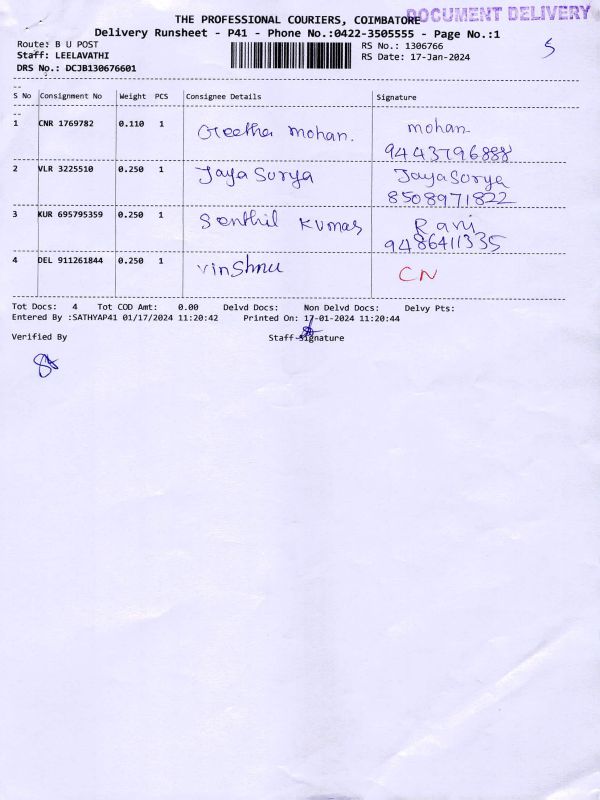 THE PROFESSIONAL COURIERS, COIMBATORE DOCUMENT DELIVERY
Delivery Runsheet - P41 - Phone No.:0422-3505555 - Page No.:1
Route: B U POST RS No.: 1306766 5
Staff: LEELAVATHI RS Date: 17-Jan-2024
DRS No.: DCJB130676601
S No Consignment No Weight PCS Consignee Details Signature
1 CNR 1769782 0.110 1 Geetha mohan. mohan
9443796888
2 VLR 3225510 0.250 1 Jaya Surya Jaya Sorya
8508971822
3 KUR 695795359 0.250 1 Senthil Kumar Rani
9486411335
4 DEL 911261844 0.250 1 Vinshnu CN
Tot Docs: 4 Tot COD Amt: 0.00 Delvd Docs: Non Delvd Docs: Delvy Pts:
Entered By :SATHYAP41 01/17/2024 11:20:42 Printed On: 17-01-2024 11:20:44
Verified By Staff Signature